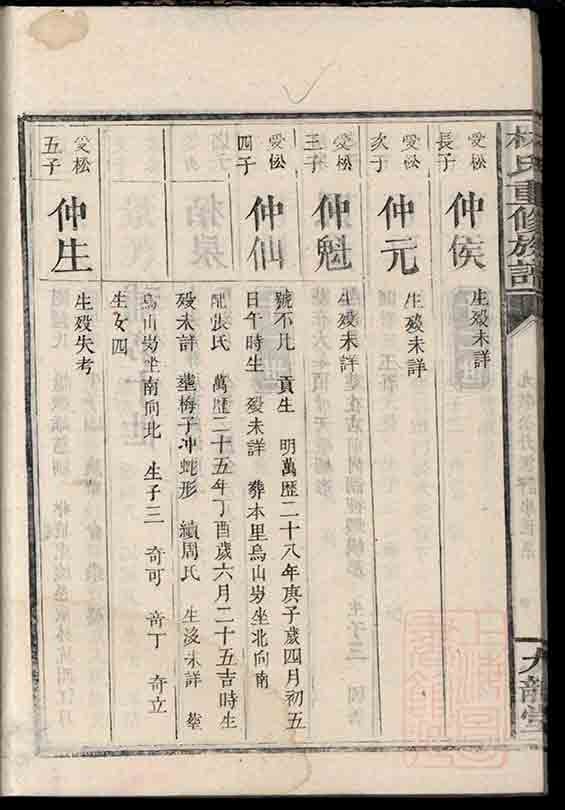 林氏重修族譜
九龍堂
愛松長子
仲侯
生殁未詳
愛松次子
仲元
生殁未詳
愛松三子
仲魁
生殁未詳
愛松四子
仲仙
號不凡 貢生 明萬歷二十八年庚子歲四月初五
日午時生 殁未詳 葬本里烏山坐北向南
配張氏 萬歷二十五年丁酉歲六月二十五吉時生
殁未詳 塟梅子冲蛇形 續周氏 生没未詳 塟
烏山坐南向北 生子三 奇可 奇丁 奇立
生女四
愛松五子
仲生
生殁失考